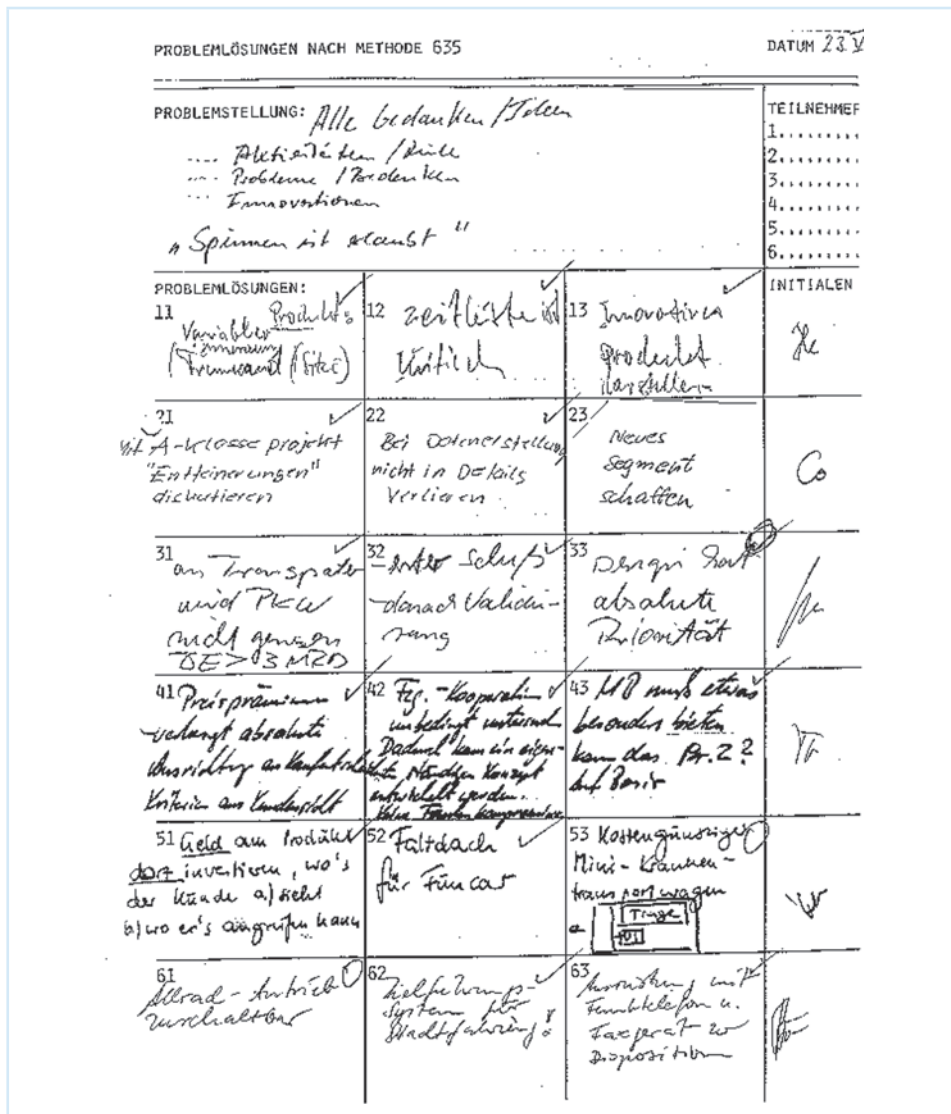 PROBLEMLÖSUNGEN NACH METHODE 635
DATUM 23.V
PROBLEMSTELLUNG: Alle Gedanken / Ideen
TEILNEHMER
1.........
.... Aktivitäten / Ziele
2.........
.... Probleme / Bedenken
3.........
... Innovationen
4.........
5.........
"Spinnen ist erlaubt"
6.........
PROBLEMLÖSUNGEN:
INITIALEN
11
Produkt:
Variabler
Innenraum
(Trennwand / Sitze)
12 Zeitleiste ist
kritisch
13 Innovatives
Produkt
darstellen
He
21
Mit A-Klasse projekt
"Entfeinerungen"
diskutieren
22
Bei Datenerstellung
nicht in Details
verlieren
23
Neues
Segment
schaffen
Co
31
an Transporter
wird PKW
nicht genesen
DE > 3 MRD
32
- erster Schuß
- danach Validie-
rung
33
Design hat
absolute
Priorität
41 Preisprämium
verlangt absolute
Ausrichtung an
Kriterien aus Kundensicht
42 Fzg.-Kooperation
unbedingt
Dadurch kann ein eigen-
ständiges Konzept
entwickelt werden.
Keine
43 MB muß etwas
besonders bieten
kann das Pr. Z?
auf Basis
51 Geld am Produkt
dort investieren, wo's
der Kunde a) sieht
b) wo er's angreifen kann
52 Faltdach
für Funcar
53 Kostengünstiger
Mini-Kranken-
transportwagen
Trage
61
Allrad-Antrieb
zuschaltbar
62
Zielführungs-
system für
Stadtfahrzeug!
63
Ausrüstung mit
Funktelefon u.
Faxgerät zur
Disposition